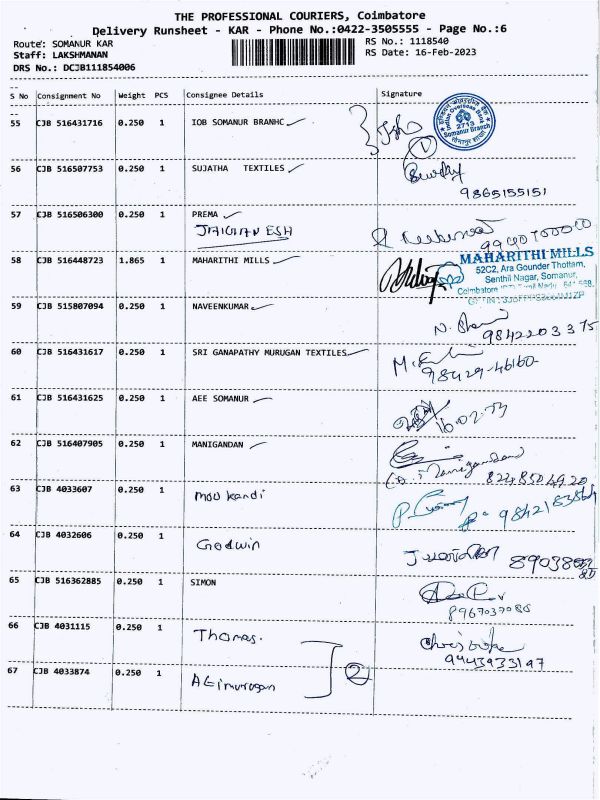 THE PROFESSIONAL COURIERS, Coimbatore
Delivery Runsheet - KAR - Phone No.:0422-3505555 - Page No.:6
Route: SOMANUR KAR
RS No.: 1118540
Staff: LAKSHMANAN
RS Date: 16-Feb-2023
DRS No.: DCJB111854006
S No Consignment No Weight PCS Consignee Details Signature
55 CJB 516431716 0.250 1 IOB SOMANUR BRANHC
Indian Overseas Bank
2713
Somanur Branch
1
56 CJB 516507753 0.250 1 SUJATHA TEXTILES
9865155151
57 CJB 516506300 0.250 1 PREMA
58 CJB 516448723 1.865 1 MAHARITHI MILLS
MAHARITHI MILLS
52C2, Ara Gounder Thottam,
Senthil Nagar, Somanur,
59 CJB 515807094 0.250 1 NAVEENKUMAR
9842203375
60 CJB 516431617 0.250 1 SRI GANAPATHY MURUGAN TEXTILES
98429-46160
61 CJB 516431625 0.250 1 AEE SOMANUR
16.02.23
62 CJB 516407905 0.250 1 MANIGANDAN
Manigandan
8248504920
63 CJB 4033607 0.250 1 Mookandi
64 CJB 4032606 0.250 1 Godwin
65 CJB 516362885 0.250 1 SIMON
8967037086
66 CJB 4031115 0.250 1 Thomas.
9443933147
67 CJB 4033874 0.250 1
2